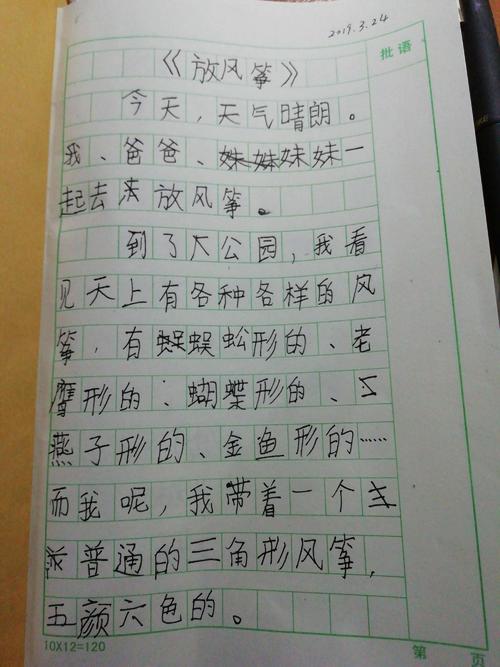 2019.3.24
批语
《放风筝》
今天,天气晴朗。
我、爸爸、妹妹一
起去放风筝。
到了大公园,我看
见天上有各种各样的风
筝,有蜈蚣形的、老
鹰形的、蝴蝶形的、
燕子形的、金鱼形的……
而我呢,我带着一个
普通的三角形风筝,
五颜六色的。
10X12=120
第 页